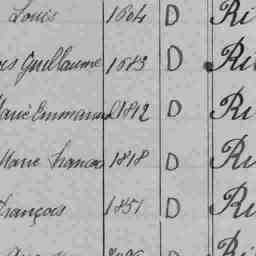 Louis 1864 D Ri
Guillaume 1883 D Ri
Marie Emmanuel 1892 D Ri
Marie Francois 1818 D Ri
François 1851 D Ri
Ri